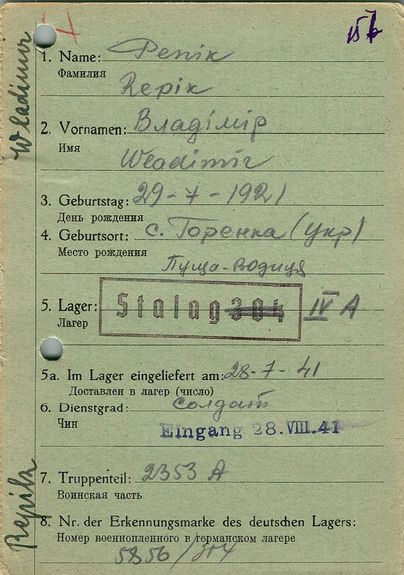 15b
Wladimir
1. Name: Репік
Фамилия
Repik
2. Vornamen: Владімір
Имя
Wladimir
3. Geburtstag: 29-7-1921
День рождения
4. Geburtsort: с. Горенка (укр)
Место рождения
Пуща-Водиця
5. Lager: Stalag 304 IV A
Лагер
5a. Im Lager eingeliefert am: 28-7-41
Доставлен в лагер (число)
6. Dienstgrad: солдат
Чин
Eingang 28.VIII.41
7. Truppenteil: 2353 А
Воинская часть
Repik
8. Nr. der Erkennungsmarke des deutschen Lagers:
Номер военнопленного в германском лагере
5856/304